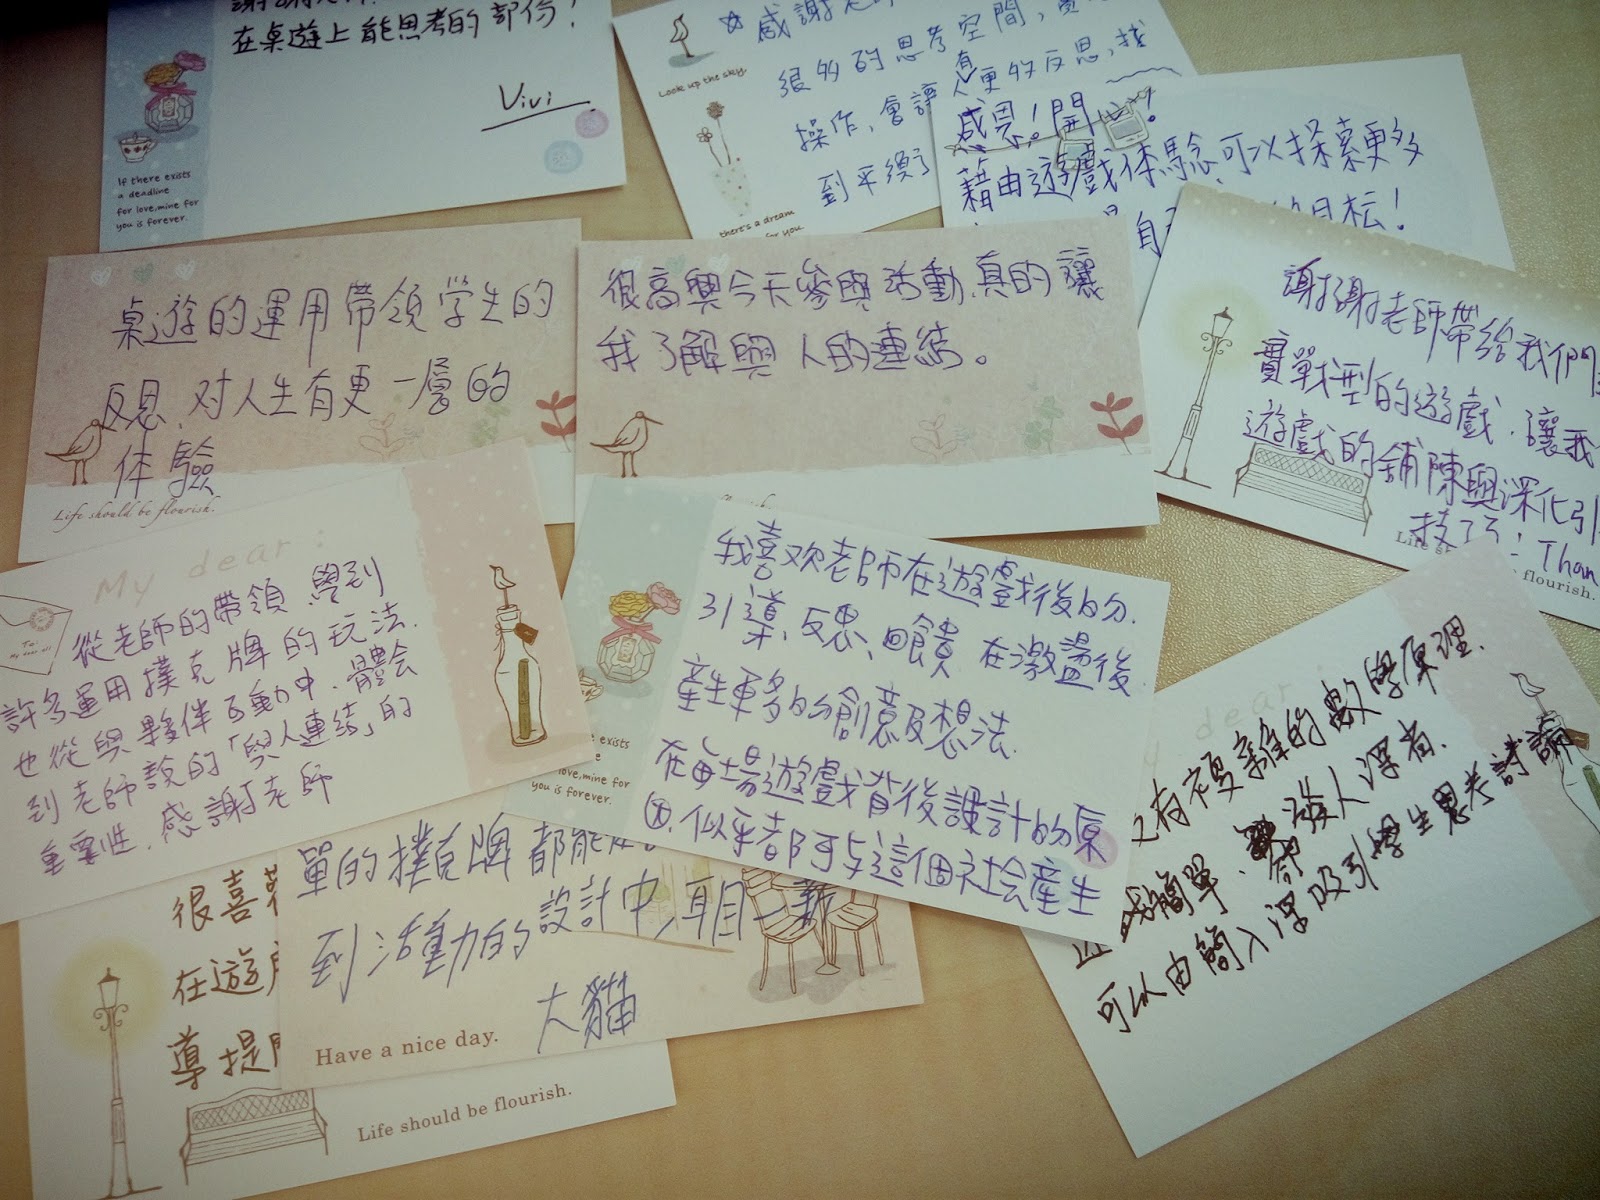 在桌遊上能思考的部份！
Vivi
If there exists
a deadline
for love,mine for
you is forever.
☆感謝老師
很多的思考空間，
操作，會讓人有更多的反思，找
到平衡了
Look up the sky.
there's a dream
for you.
感恩！開心！
藉由遊戲体驗，可以探索更多
自
的目标！
桌遊的運用帶領學生的
反思，对人生有更一層的
体驗
Life should be flourish.
很高興今天參與活動，真的讓
我了解與人的連結。
謝謝老師帶給我們
實戰型的遊戲，讓我
遊戲的鋪陳與深化引
技巧！Than
flourish.
My dear:
To:
My dear all
從老師的帶領，學到
許多運用撲克牌的玩法，
也從與夥伴互動中，體會
到老師說的「與人連結」的
重要性，感謝老師
我喜欢老師在遊戲後的
引導，反思、回饋，在激盪後
產生更多的創意及想法，
在每場遊戲背後設計的原
因，似乎都可与這個社会產生
exists
love,mine for
you is forever.
dear
有複雜的數學原理，
簡單，發人深省，
可以由簡入深吸引學生思考討論
單的撲克牌都能
到活動的設計中，耳目一新
大貓
Have a nice day.
很喜
在遊
導提
Life should be flourish.